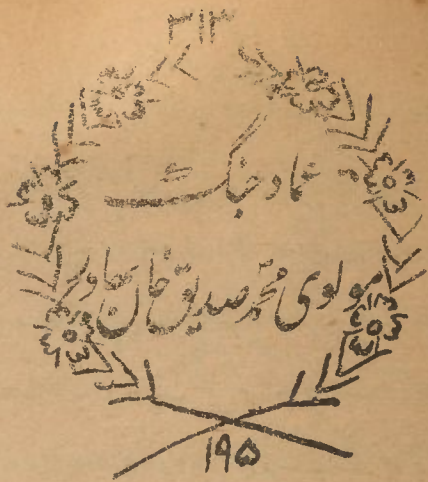 ۳۱۳
عماد جنگ
مولوی محمد صدیق خان بہادر
۱۹۵